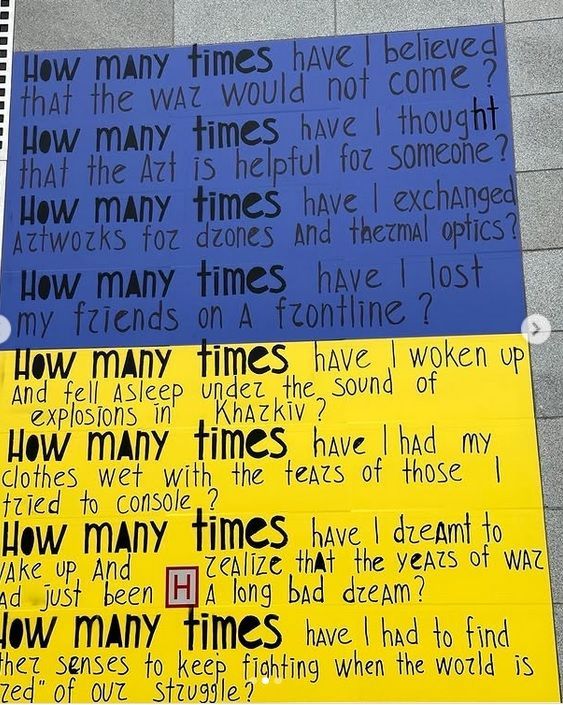 How many times have I believed
that the war would not come?
How many times have I thought
that the Art is helpful for someone?
How many times have I exchanged
Artworks for drones and thermal optics?
How many times have I lost
my friends on a frontline?
How many times have I woken up
and fell asleep under the sound of
explosions in Kharkiv?
How many times have I had my
clothes wet with the tears of those I
tried to console?
How many times have I dreamt to
wake up and realize that the years of war
had just been H a long bad dream?
How many times have I had to find
senses to keep fighting when the world is
of our struggle?